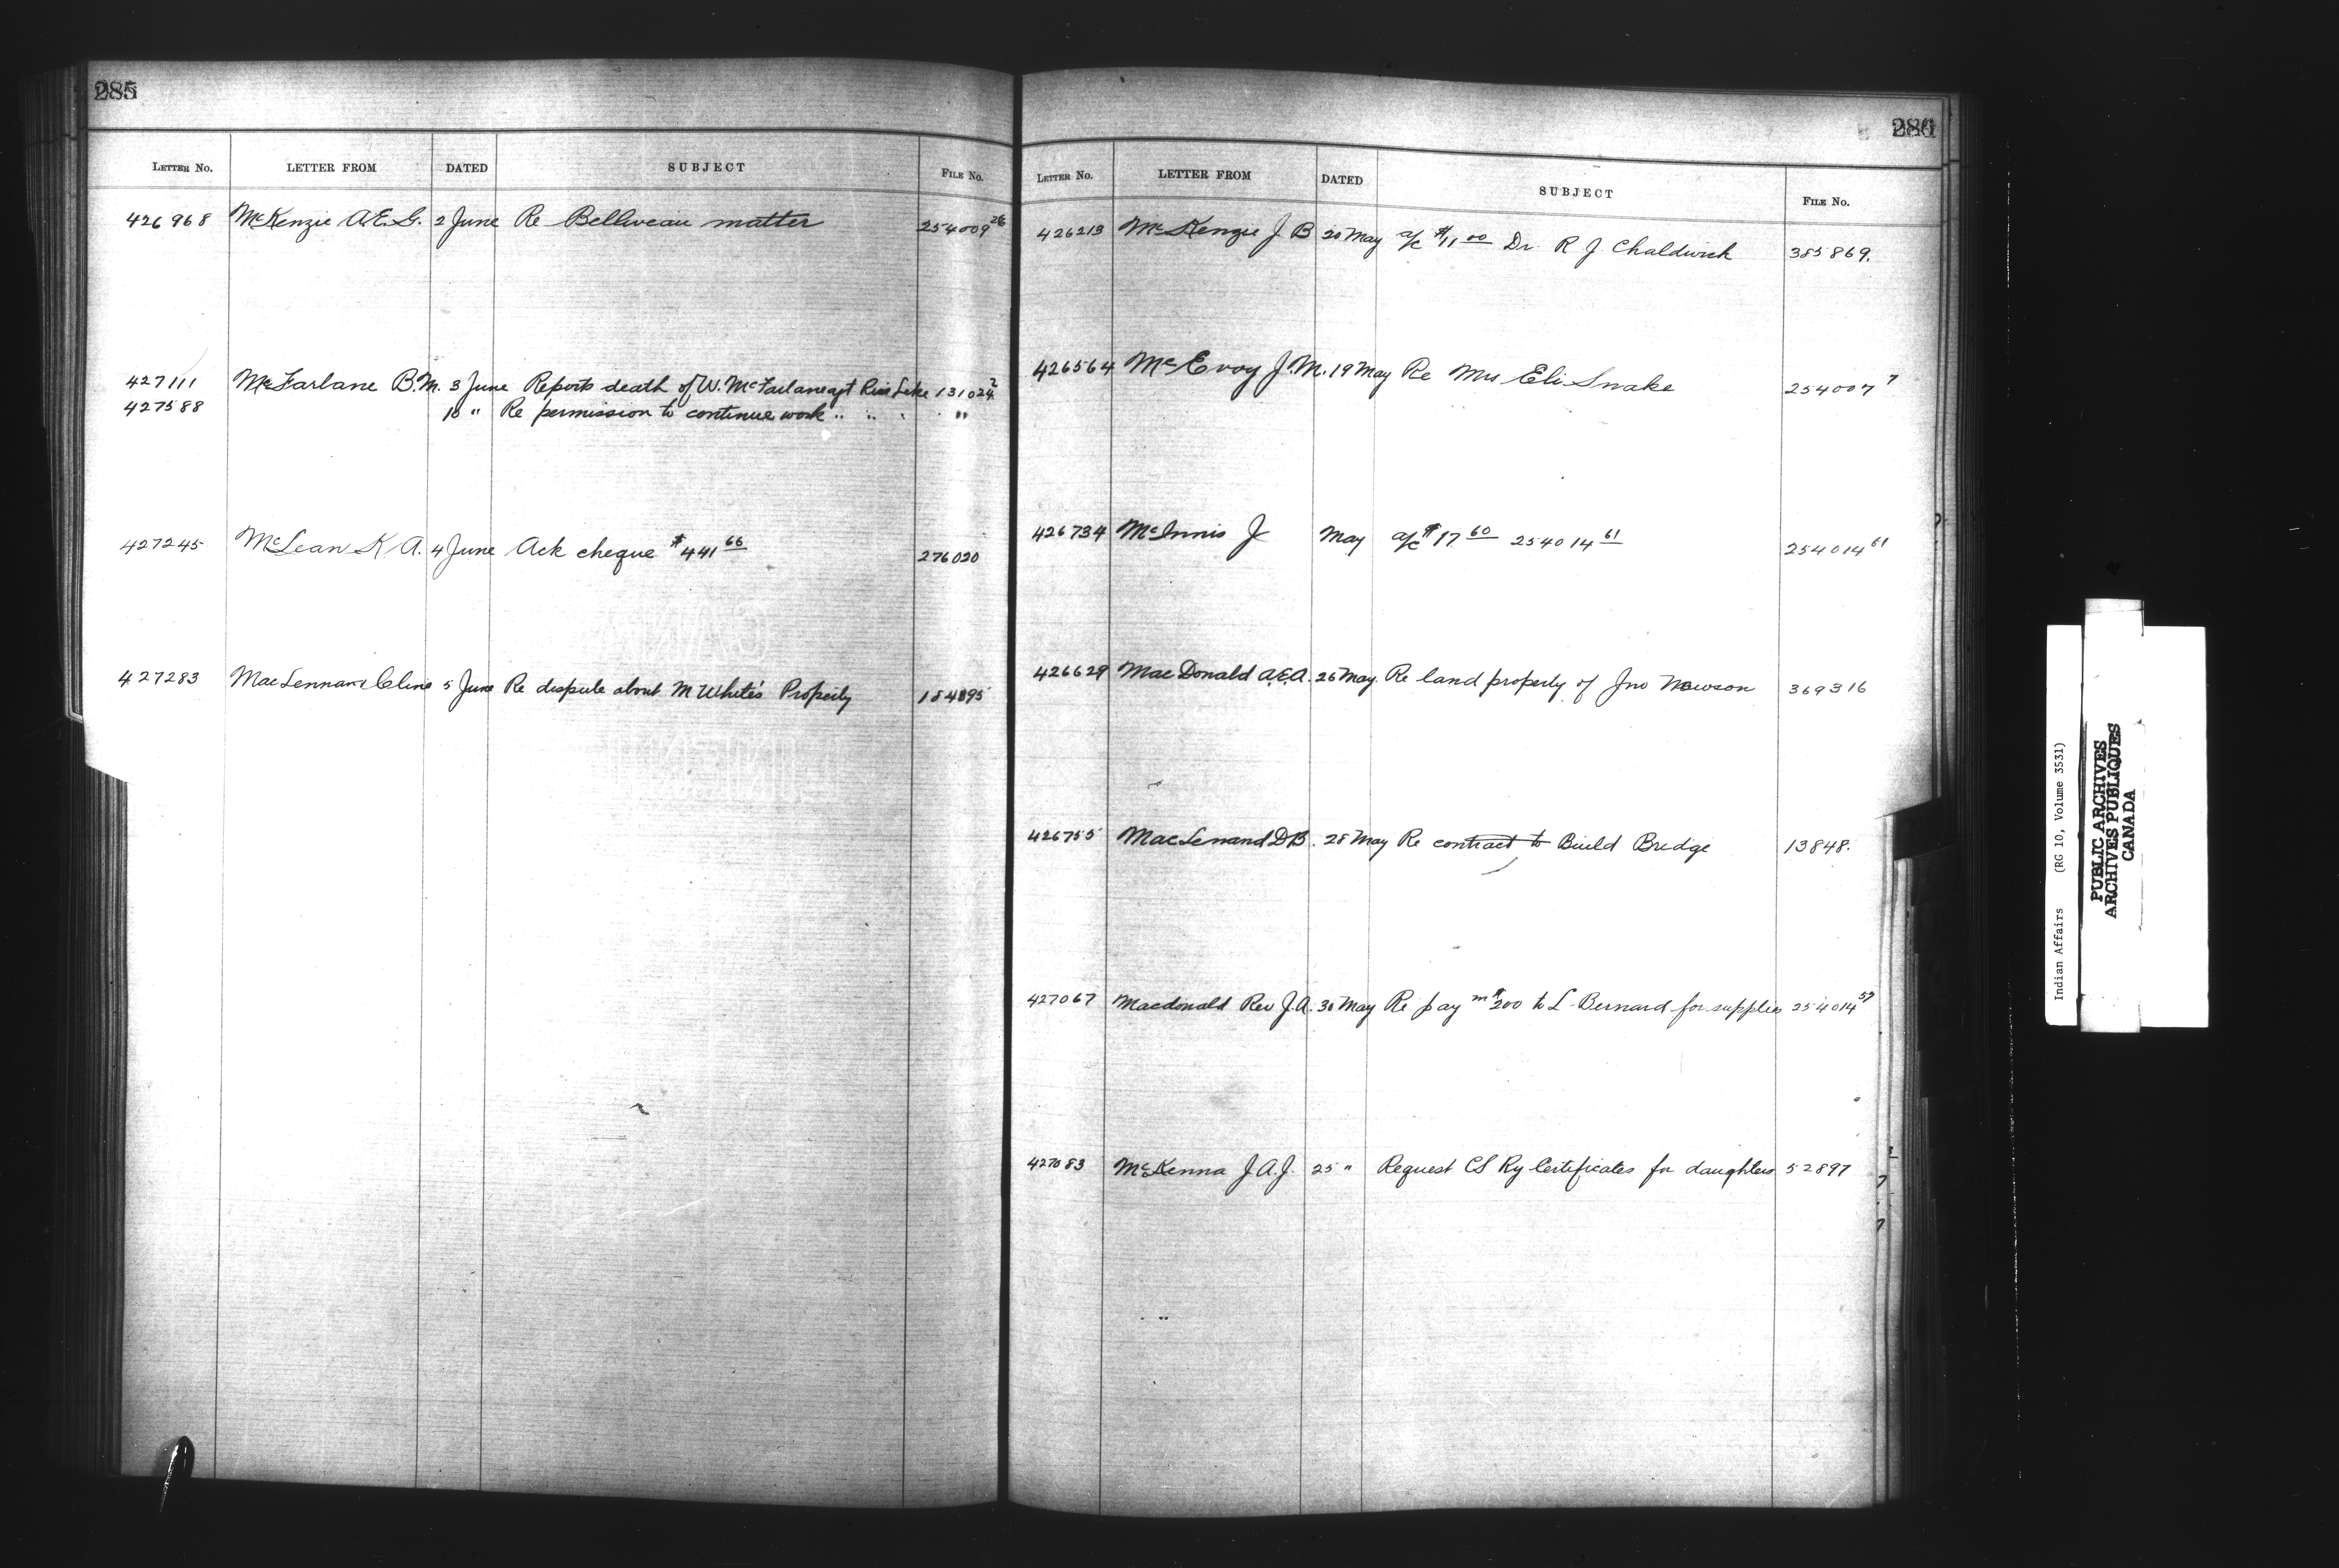 285
LETTER No. LETTER FROM DATED SUBJECT FILE No.
426968 McKenzie A.E.G. 2 June Re Belliveau matter 254009 26
427111 McFarlane B.M. 3 June Reports death of W. McFarlane agt Rice Lake 131024 2
427588 10 " Re permission to continue work " " " "
427245 McLean K A. 4 June Ack cheque $441 66 276020
427283 MacLennan & Cline 5 June Re dispute about M White's Property 184895
286
LETTER No. LETTER FROM DATED SUBJECT FILE No.
426213 McKenzie J B 20 May a/c $11 00 Dr. R J. Chaldwick 385869.
426564 McEvoy J.M. 19 May Re Mrs Eli Snake 254007 7
426734 McInnis J May a/c $17 60 254014 61 254014 61
426629 MacDonald A.E.A. 26 May. Re land property of Jno Mawson 369316
426755 MacLenand D B. 28 May Re contract to Build Bridge 13848.
427067 Macdonald Rev J.A. 30 May Re paymt $200 to L. Bernard for supplies 254014 57
427083 McKenna J A.J. 25 " Request CS Ry Certificates for daughters 52897
Indian Affairs (RG 10, Volume 3531)
PUBLIC ARCHIVES
ARCHIVES PUBLIQUES
CANADA